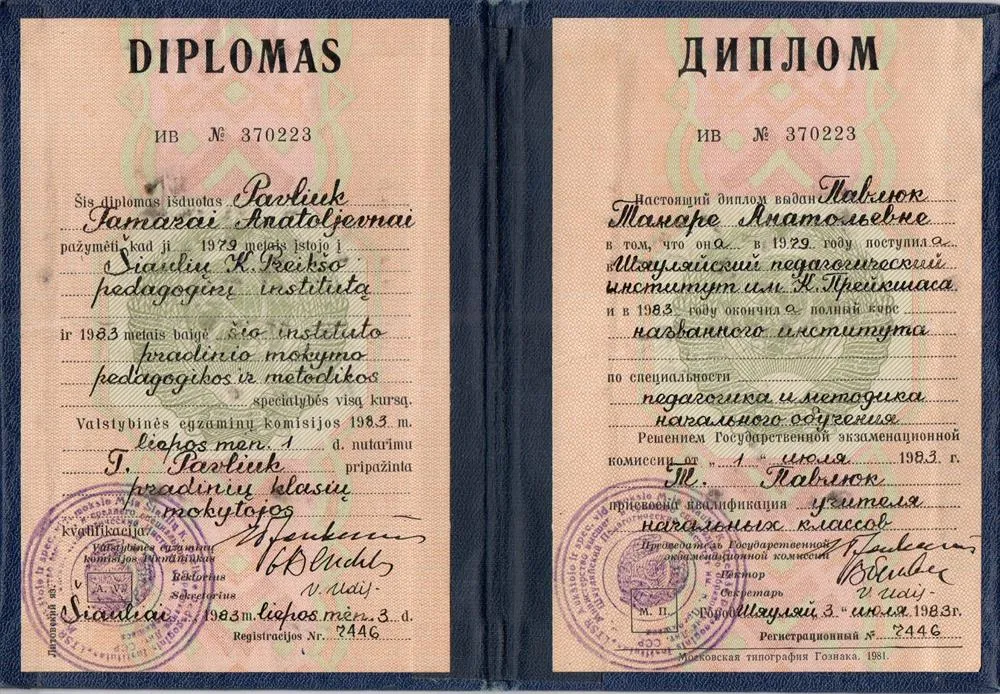 DIPLOMAS
ИВ № 370223
Šis diplomas išduotas Pavliuk
Tamarai Anatoljevnai
pažymėti, kad ji 1979 metais įstojo į
Šiaulių K. Preikšo
pedagoginį institutą
ir 1983 metais baigė šio instituto
pradinio mokymo
pedagogikos ir metodikos
specialybės visą kursą.
Valstybinės egzaminų komisijos 1983 m.
liepos mėn. 1 d. nutarimu
T. Pavliuk pripažinta
pradinių klasių
mokytojos
kvalifikacija.
Valstybinės egzaminų
komisijos Pirmininkas
Rektorius
Sekretorius
A. V.
Šiauliai 1983 m. liepos mėn. 3 d.
Registracijos Nr. 7446
Литовский яз.
ДИПЛОМ
ИВ № 370223
Настоящий диплом выдан Павлюк
Тамаре Анатольевне
в том, что она в 1979 году поступила
в Шяуляйский педагогический
институт им. К. Прейкшаса
и в 1983 году окончила полный курс
названного института
по специальности
педагогика и методика
начального обучения
Решением Государственной экзаменационной
комиссии от „1“ июля 1983 г.
Т. Павлюк
присвоена квалификация учителя
начальных классов
Председатель Государственной
экзаменационной комиссии
Ректор
Секретарь
М. П.
Город Шяуляй 3 “ июля 1983 г.
Регистрационный № 7446
Московская типография Гознака. 1981.